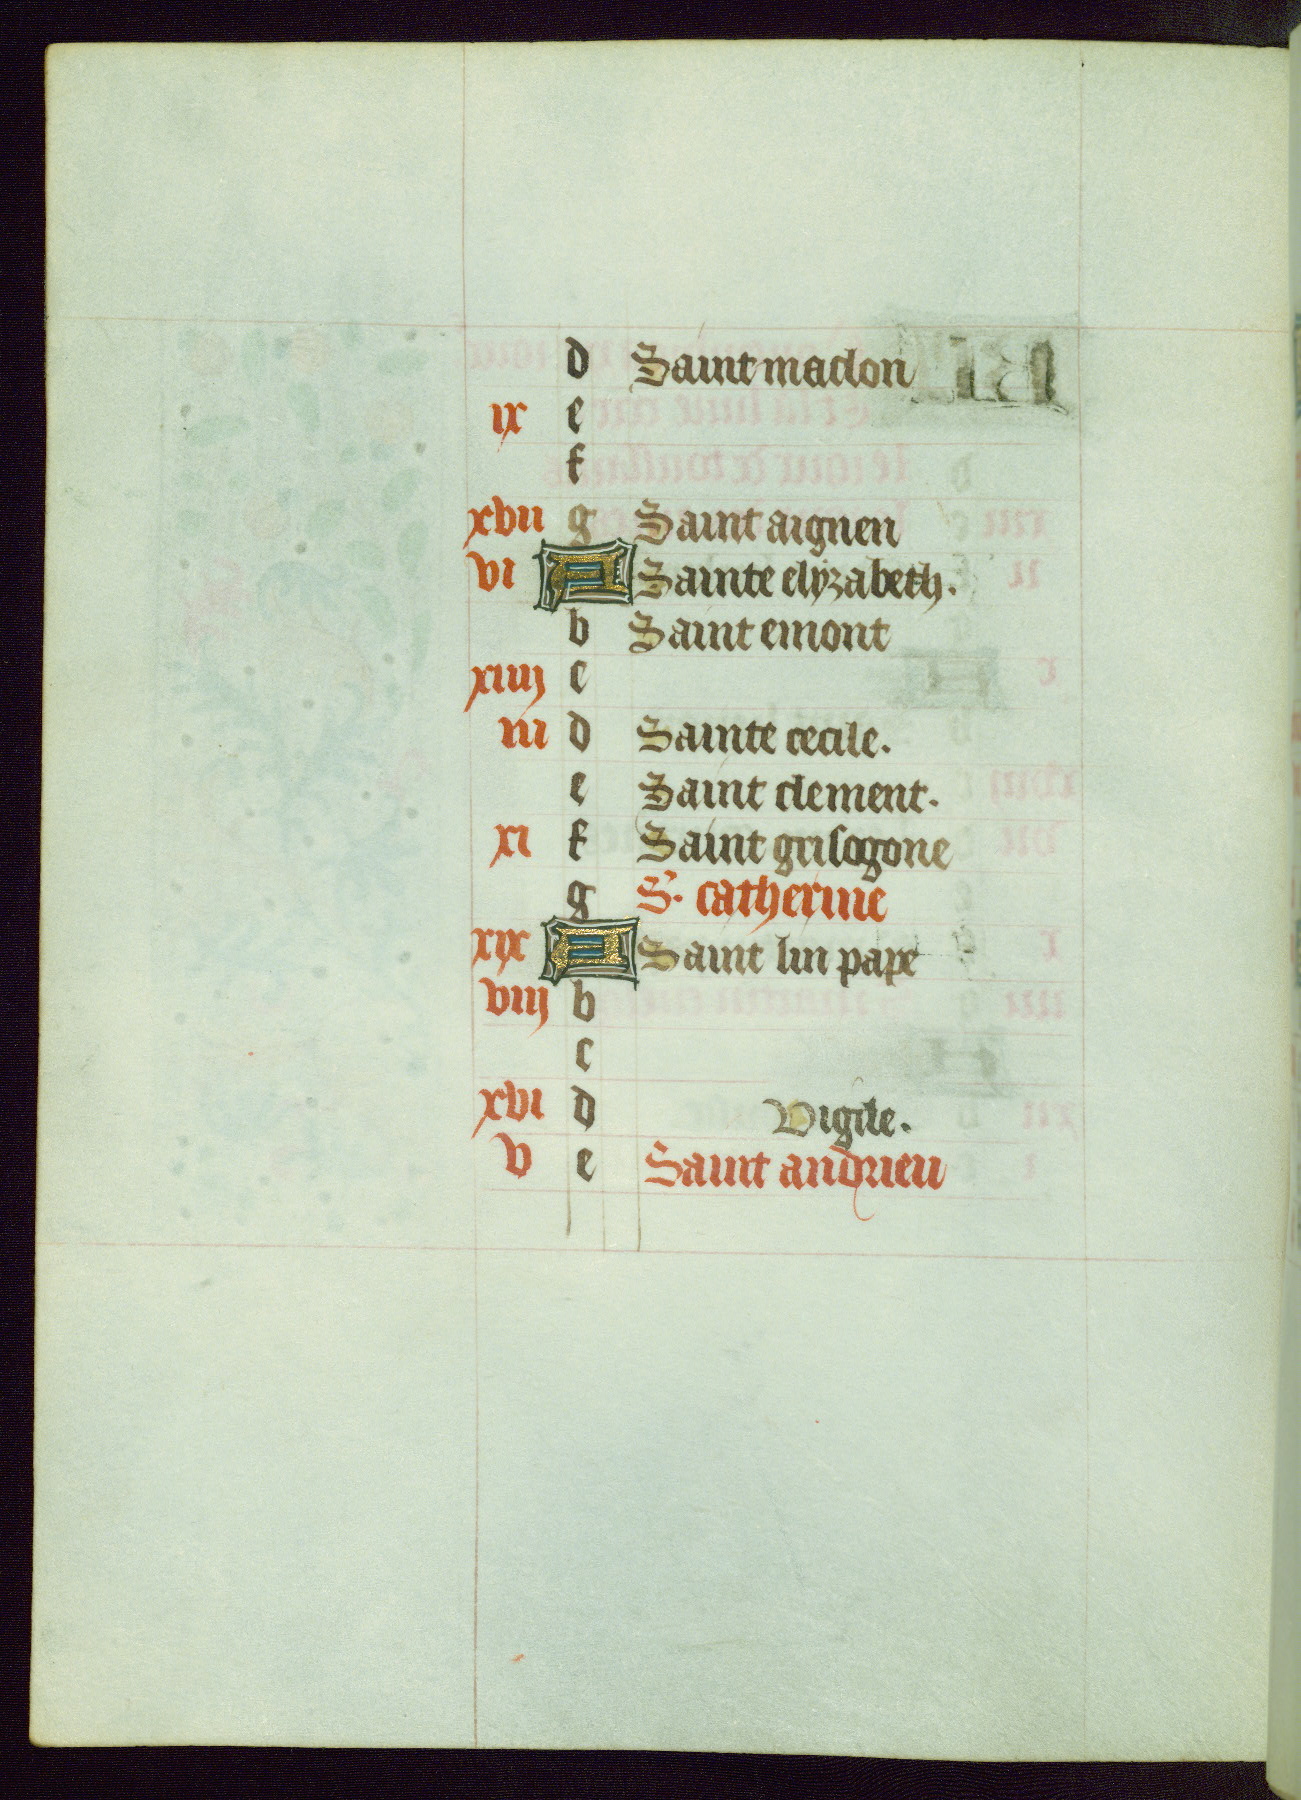 d Saint maclon
ix e
f
xvii g Saint aignen
vi A Sainte elyzabeth.
b Saint emont
xiiij c
iii d Sainte cecile.
e Saint clement.
xi f Saint grisogone
g S. catherine
xix A Saint lin pape
viij b
c
xvi d Vigile.
v e Saint andrieu